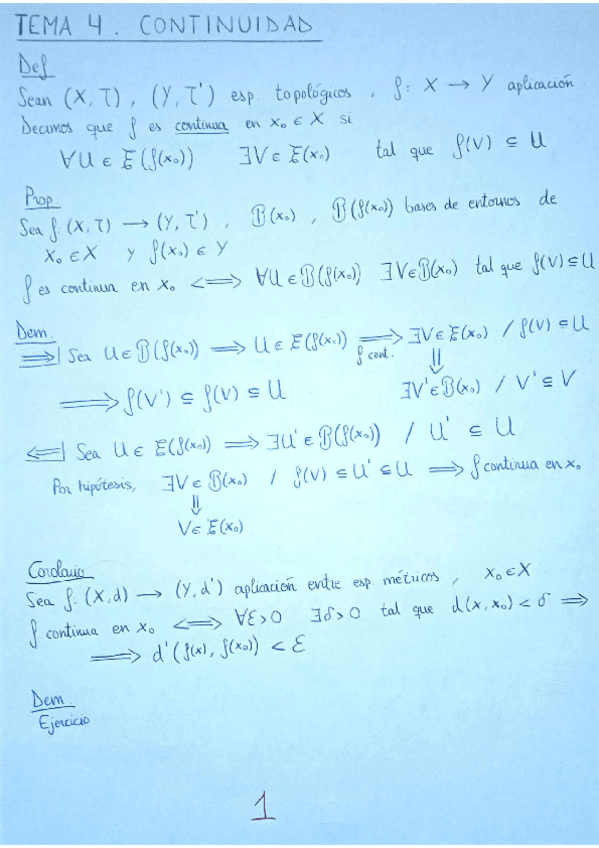 TEMA 4. CONTINUIDAD
Def
Sean (X, T), (Y, T') esp. topológicos, f: X → Y aplicación.
Decimos que f es continua en x₀ ∈ X si
∀U ∈ ξ(f(x₀)) ∃V ∈ ξ(x₀) tal que f(V) ⊆ U
Prop
Sea f: (X, T) → (Y, T'), B(x₀), B(f(x₀)) bases de entornos de
x₀ ∈ X y f(x₀) ∈ Y
f es continua en x₀ ⟺ ∀U ∈ B(f(x₀)) ∃V ∈ B(x₀) tal que f(V) ⊆ U
Dem.
⟹| Sea U ∈ B(f(x₀)) ⟹ U ∈ ξ(f(x₀)) ⟹ ∃V ∈ ξ(x₀) / f(V) ⊆ U
f cont. ⇓
⟹ f(V') ⊆ f(V) ⊆ U ∃V' ∈ B(x₀) / V' ⊆ V
⟸| Sea U ∈ ξ(f(x₀)) ⟹ ∃U' ∈ B(f(x₀)) / U' ⊆ U
Por hipótesis, ∃V ∈ B(x₀) / f(V) ⊆ U' ⊆ U ⟹ f continua en x₀
⇓
V ∈ ξ(x₀)
Corolario
Sea f: (X, d) → (Y, d') aplicación entre esp. métricos, x₀ ∈ X
f continua en x₀ ⟺ ∀ε > 0 ∃δ > 0 tal que d(x, x₀) < δ ⟹
⟹ d'(f(x), f(x₀)) < ε
Dem
Ejercicio
1